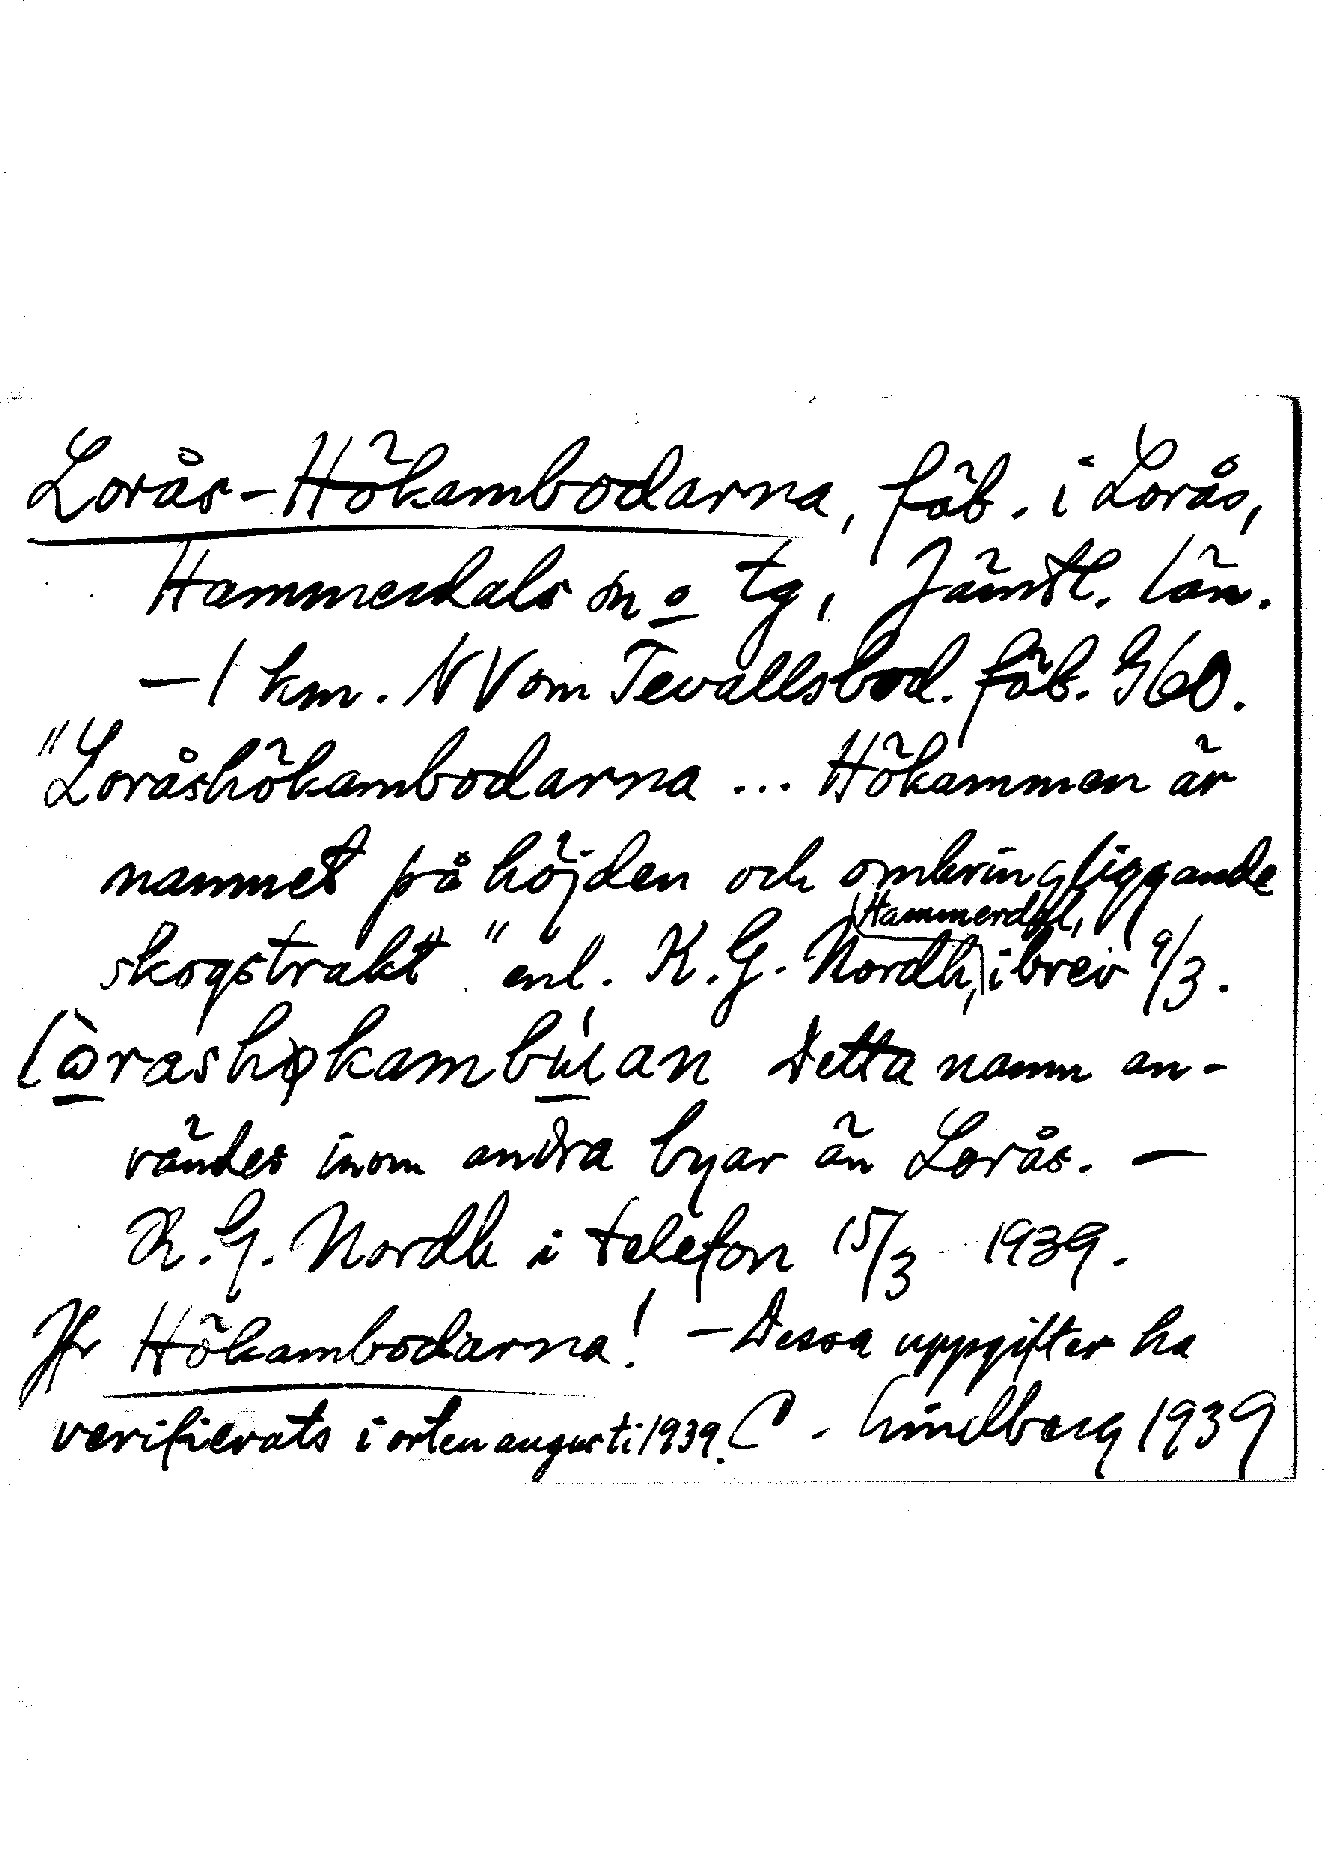 Lorås-Hökambodarna, fäb. i Lorås,
Hammerdals sn o tg, Jämtl. län.
— 1 km. NV om Tevallsbod. fäb. G60.
"Loråshökambodarna ... Hökammen är
namnet på höjden och omkringliggande
skogstrakt" enl. K.G. Nordh, Hammerdal, i brev 9/3.
Detta namn an-
vändes inom andra byar än Lorås. —
K.G. Nordh i telefon 15/3 1939.
Jfr Hökambodarna! — Dessa uppgifter ha
verifierats i orten augusti 1939. C - Lindberg 1939